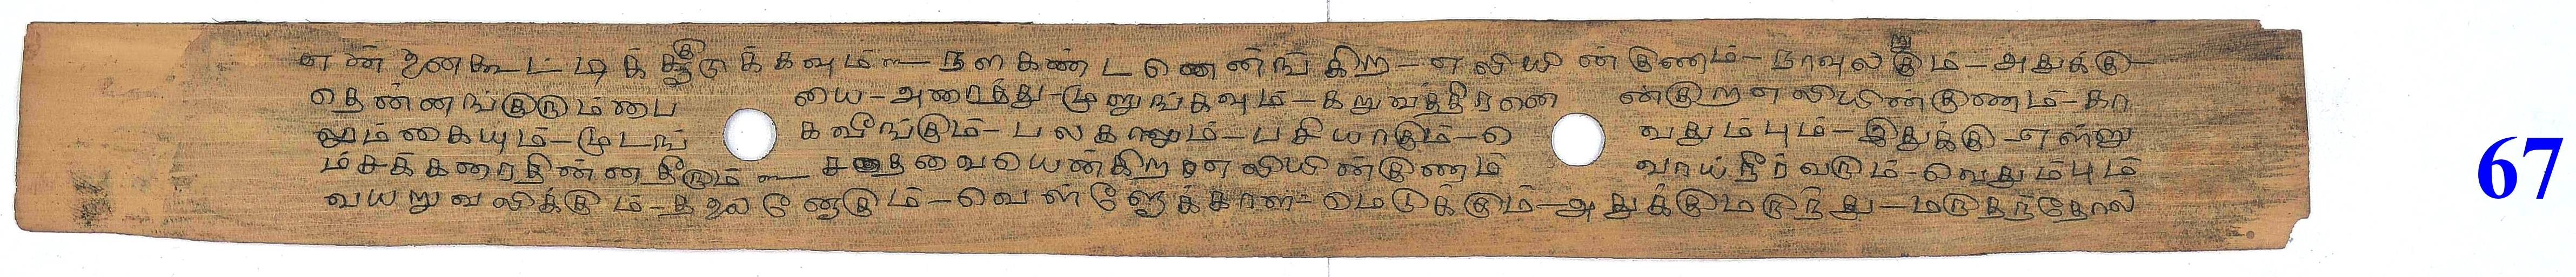 ண் ணகூட்டிக் குடுக்கவும் நளகண்டனென்ங்கிற – எலியின் குணம் – நாவுலறும் – அதுக்கு –
தென்னங்குரும்பை யை – அரைத்து – முழுங்கவும் – கறுவ ன்கிறஎலியின்குணம் – கா
லும்கையும் – முடங் கவீங்கும் – பலகாலும் – பசியாகும் – வெ வதும்பும் – இதுக்கு – எள்ளு
ம்சக்கரைதின்னதீரும் என்கிறஎலியின்குணம் வாய்நீர்வரும் – வெதும்பும்
வயறுவலிக்கும் – தலைநோகும் – வெள்ளோக்காள – மெடுக்கும் – அதுக்குமருந்து – மருதந்தோல்
67